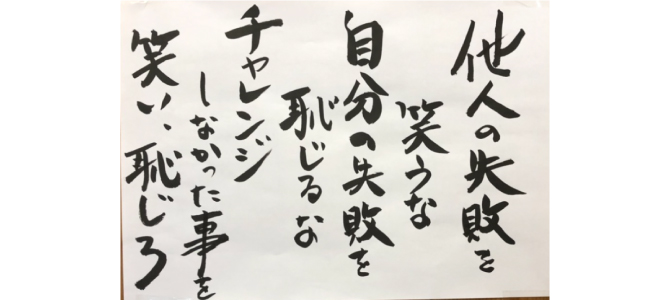 他人の失敗を
笑うな
自分の失敗を
恥じるな
チャレンジ
しなかった事を
笑い、恥じろ